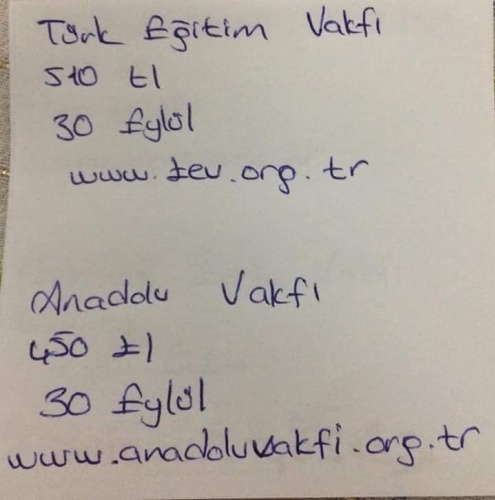 Türk Eğitim Vakfı
510 tl
30 Eylül
www.tev.org.tr
Anadolu Vakfı
450 tl
30 Eylül
www.anadoluvakfi.org.tr